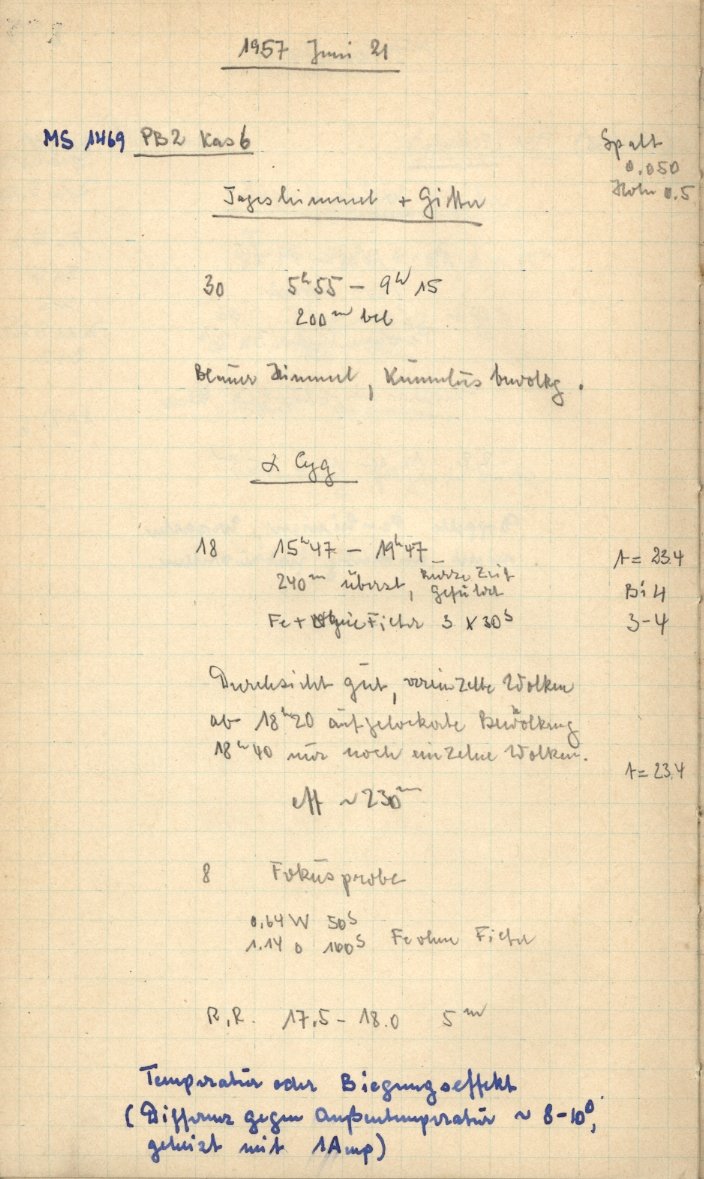 1957 Juni 21
MS 1469 PB2 Kas 6
Spalt
0.050
Höhe 0.5
Tageshimmel + Gitter
30 5ʰ55 – 9ʰ15
200ᵐ bel
Blauer Himmel, Kumulusbewolkg.
α Cyg
18 15ʰ47 – 19ʰ47
t = 23.4
240ᵐ überst, kurze Zeit geführt
Bi 4
Fe + Filter 3 x 30ˢ
3-4
Durchsicht gut, vereinzelte Wolken
ab 18ʰ20 aufgelockerte Bewölkung
18ʰ40 nur noch einzelne Wolken.
t = 23.4
eff ~230ᵐ
8 Fokusprobe
0.64 W 50ˢ
1.14 0 100ˢ Fe ohne Filter
R.R. 17.5 – 18.0 5ᵐ
Temperatur oder Biegungseffekt
(Differenz gegen Außentemperatur ~ 8-10°,
geheizt mit 1Amp)